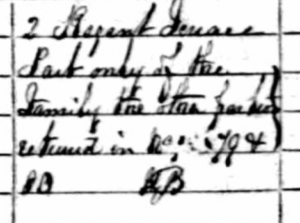 2 Regent Square
Part only of the
Family the other portion
returned in No: 794
AB AB